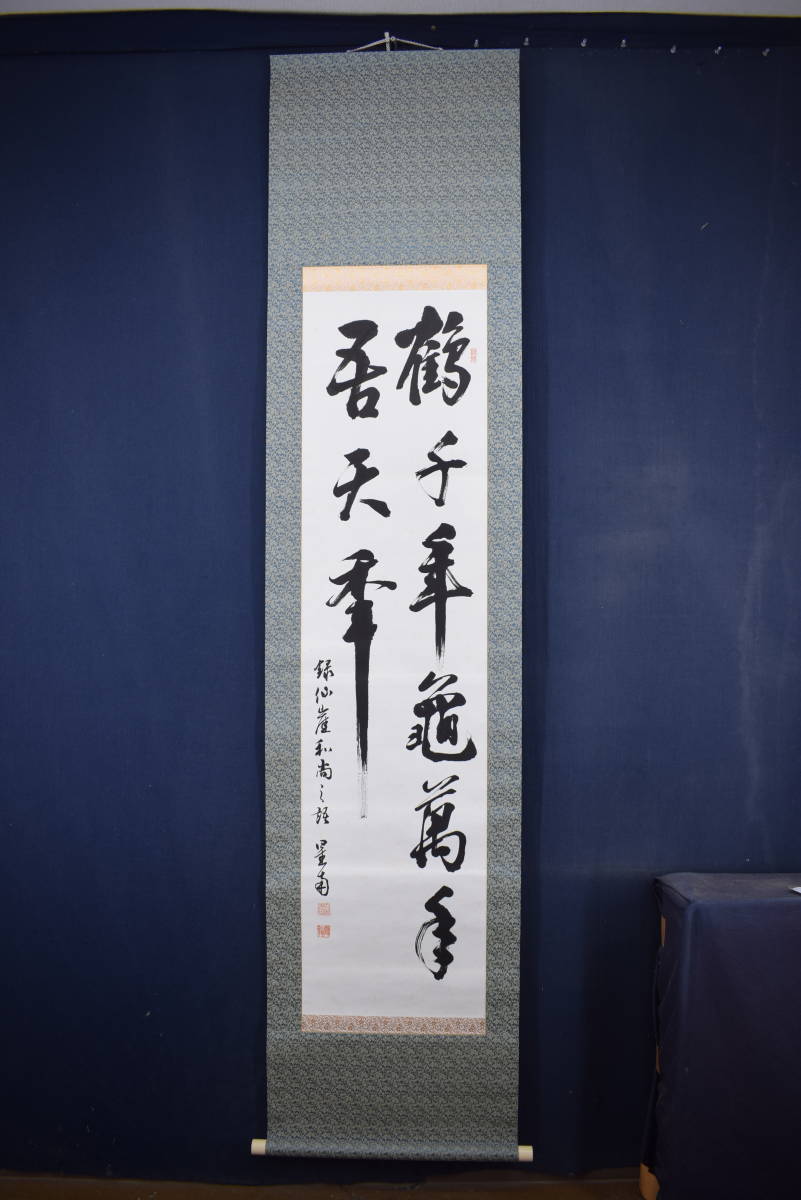 鶴千年龜萬年
吾天年
録仙崖和尚之語 星南